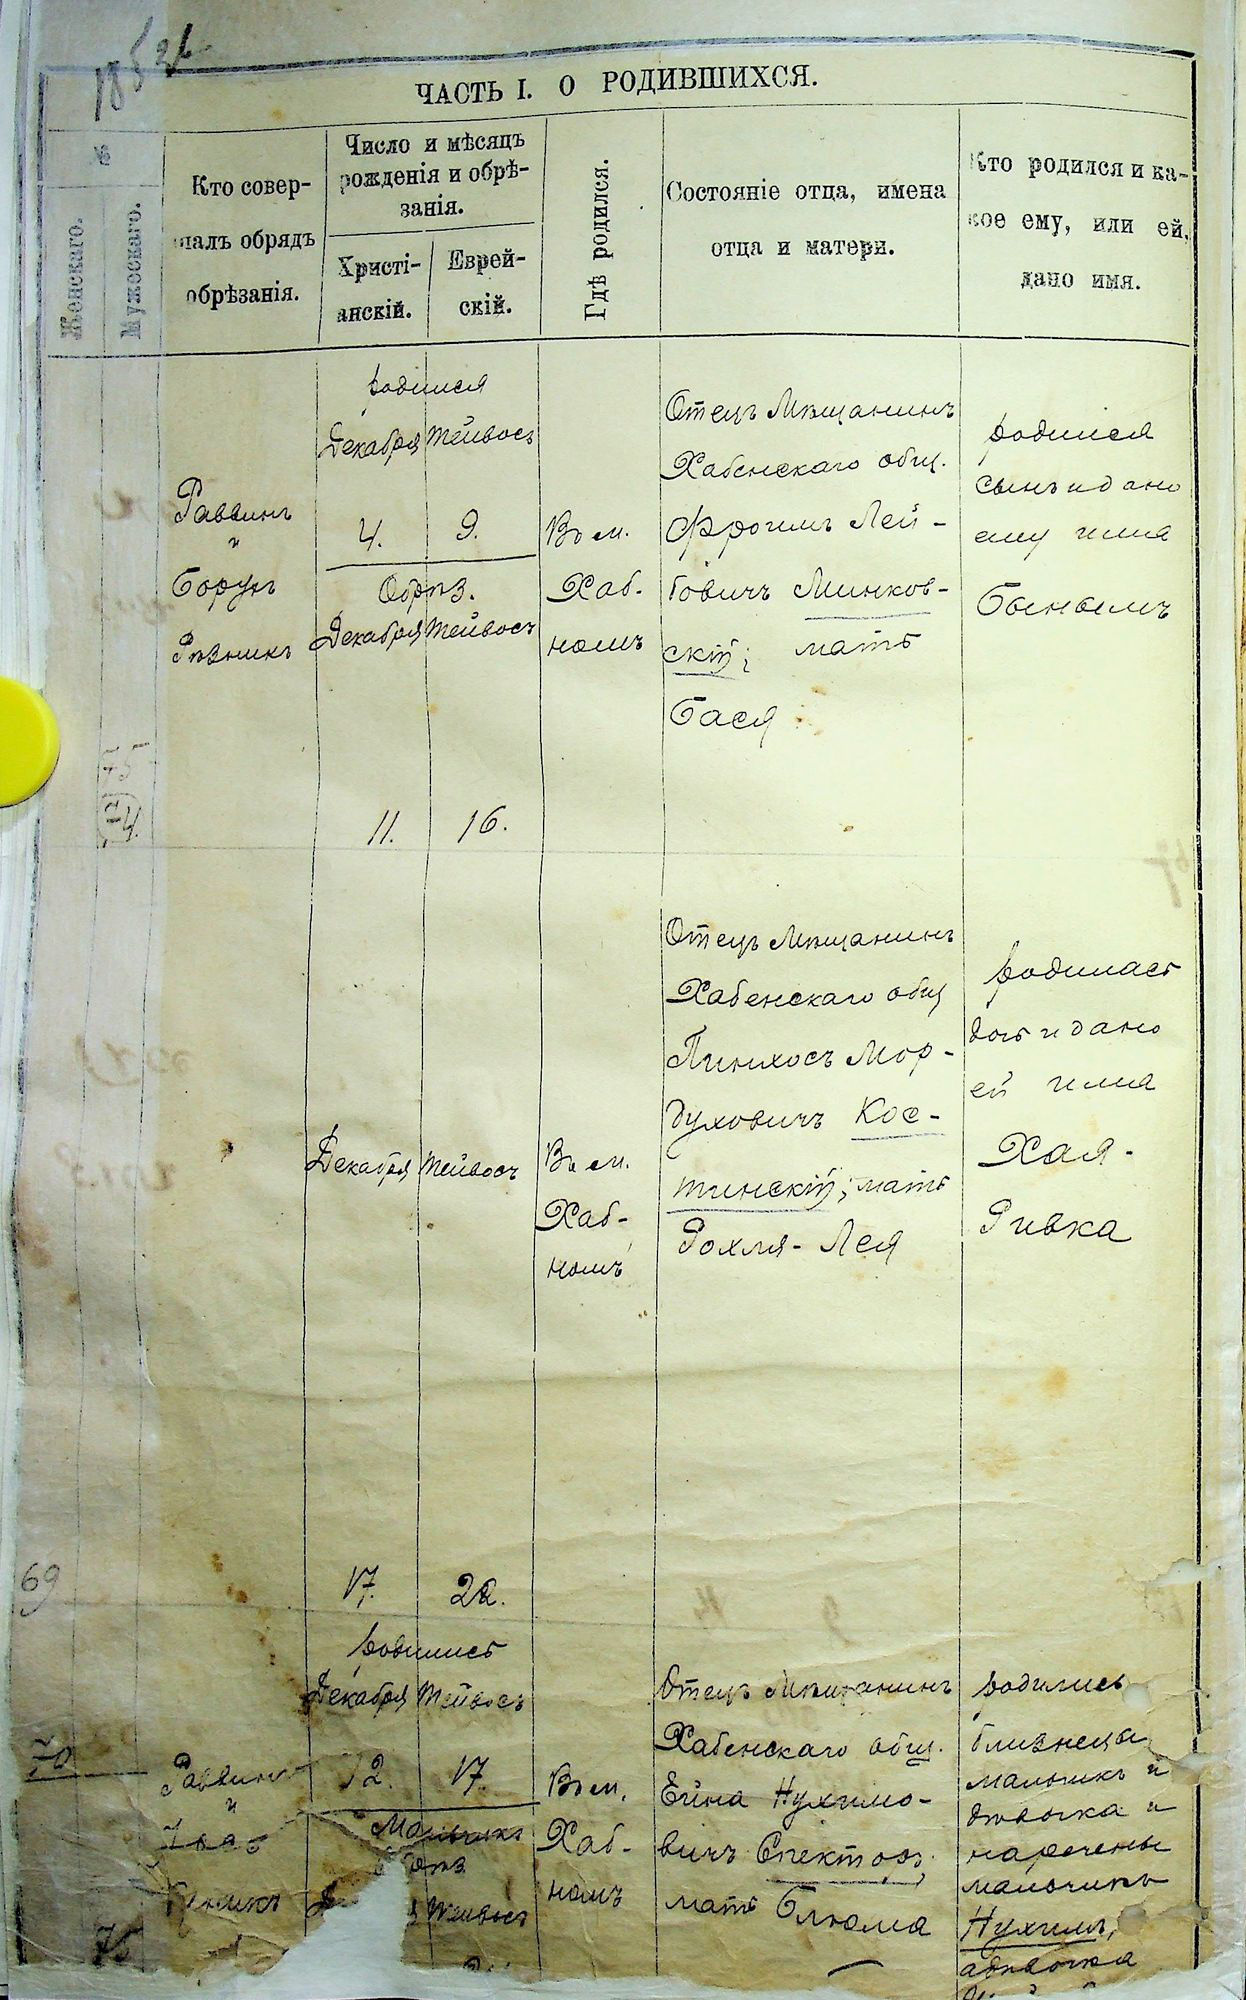 ЧАСТЬ I. О РОДИВШИХСЯ.
№
Женскаго.
Мужескаго.
Кто совер-
шалъ обрядъ
обрѣзанія.
Число и мѣсяцъ
рожденія и обрѣ-
занія.
Христі-
анскій.
Еврей-
скій.
Гдѣ родился.
Состояніе отца, имена
отца и матери.
Кто родился и ка-
кое ему, или ей,
дано имя.
75
74.
Раввинъ
и
Борухъ
Рѣзникъ
родился
Декабря Тейвосъ
4. 9.
Обрѣз.
Декабря Тейвосъ
11. 16.
Въ м.
Хаб-
номъ
Отецъ Мѣщанинъ
Хабенскаго общ.
Фроимъ Лей-
бовичъ Минков-
скій; мать
Бася
родился
сынъ и дано
ему имя
Бынымъ
69
Декабря Тейвосъ
17. 22.
Въ м.
Хаб-
номъ
Отецъ Мѣщанинъ
Хабенскаго общ
Пинхосъ Мор-
духовичъ Кос-
тинскій; мать
Рохля-Лея
родилась
дочь и дано
ей имя
Хая-
Ривка
70
75
Раввинъ
и
родились
Декабря Тейвосъ
12. 17.
Мальчикъ
Тейвосъ
Въ м.
Хаб-
номъ
Отецъ Мѣщанинъ
Хабенскаго общ.
Ейна Нухимо-
вичъ Спекторъ.
мать Блюма
родились
близнецы
мальчикъ и
дѣвочка и
наречены
мальчикъ
Нухимъ,
а дѣвочка